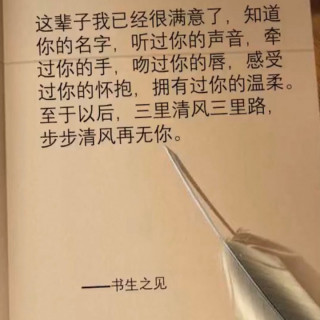 这辈子我已经很满意了，知道
你的名字，听过你的声音，牵
过你的手，吻过你的唇，感受
过你的怀抱，拥有过你的温柔。
至于以后，三里清风三里路，
步步清风再无你。
——书生之见